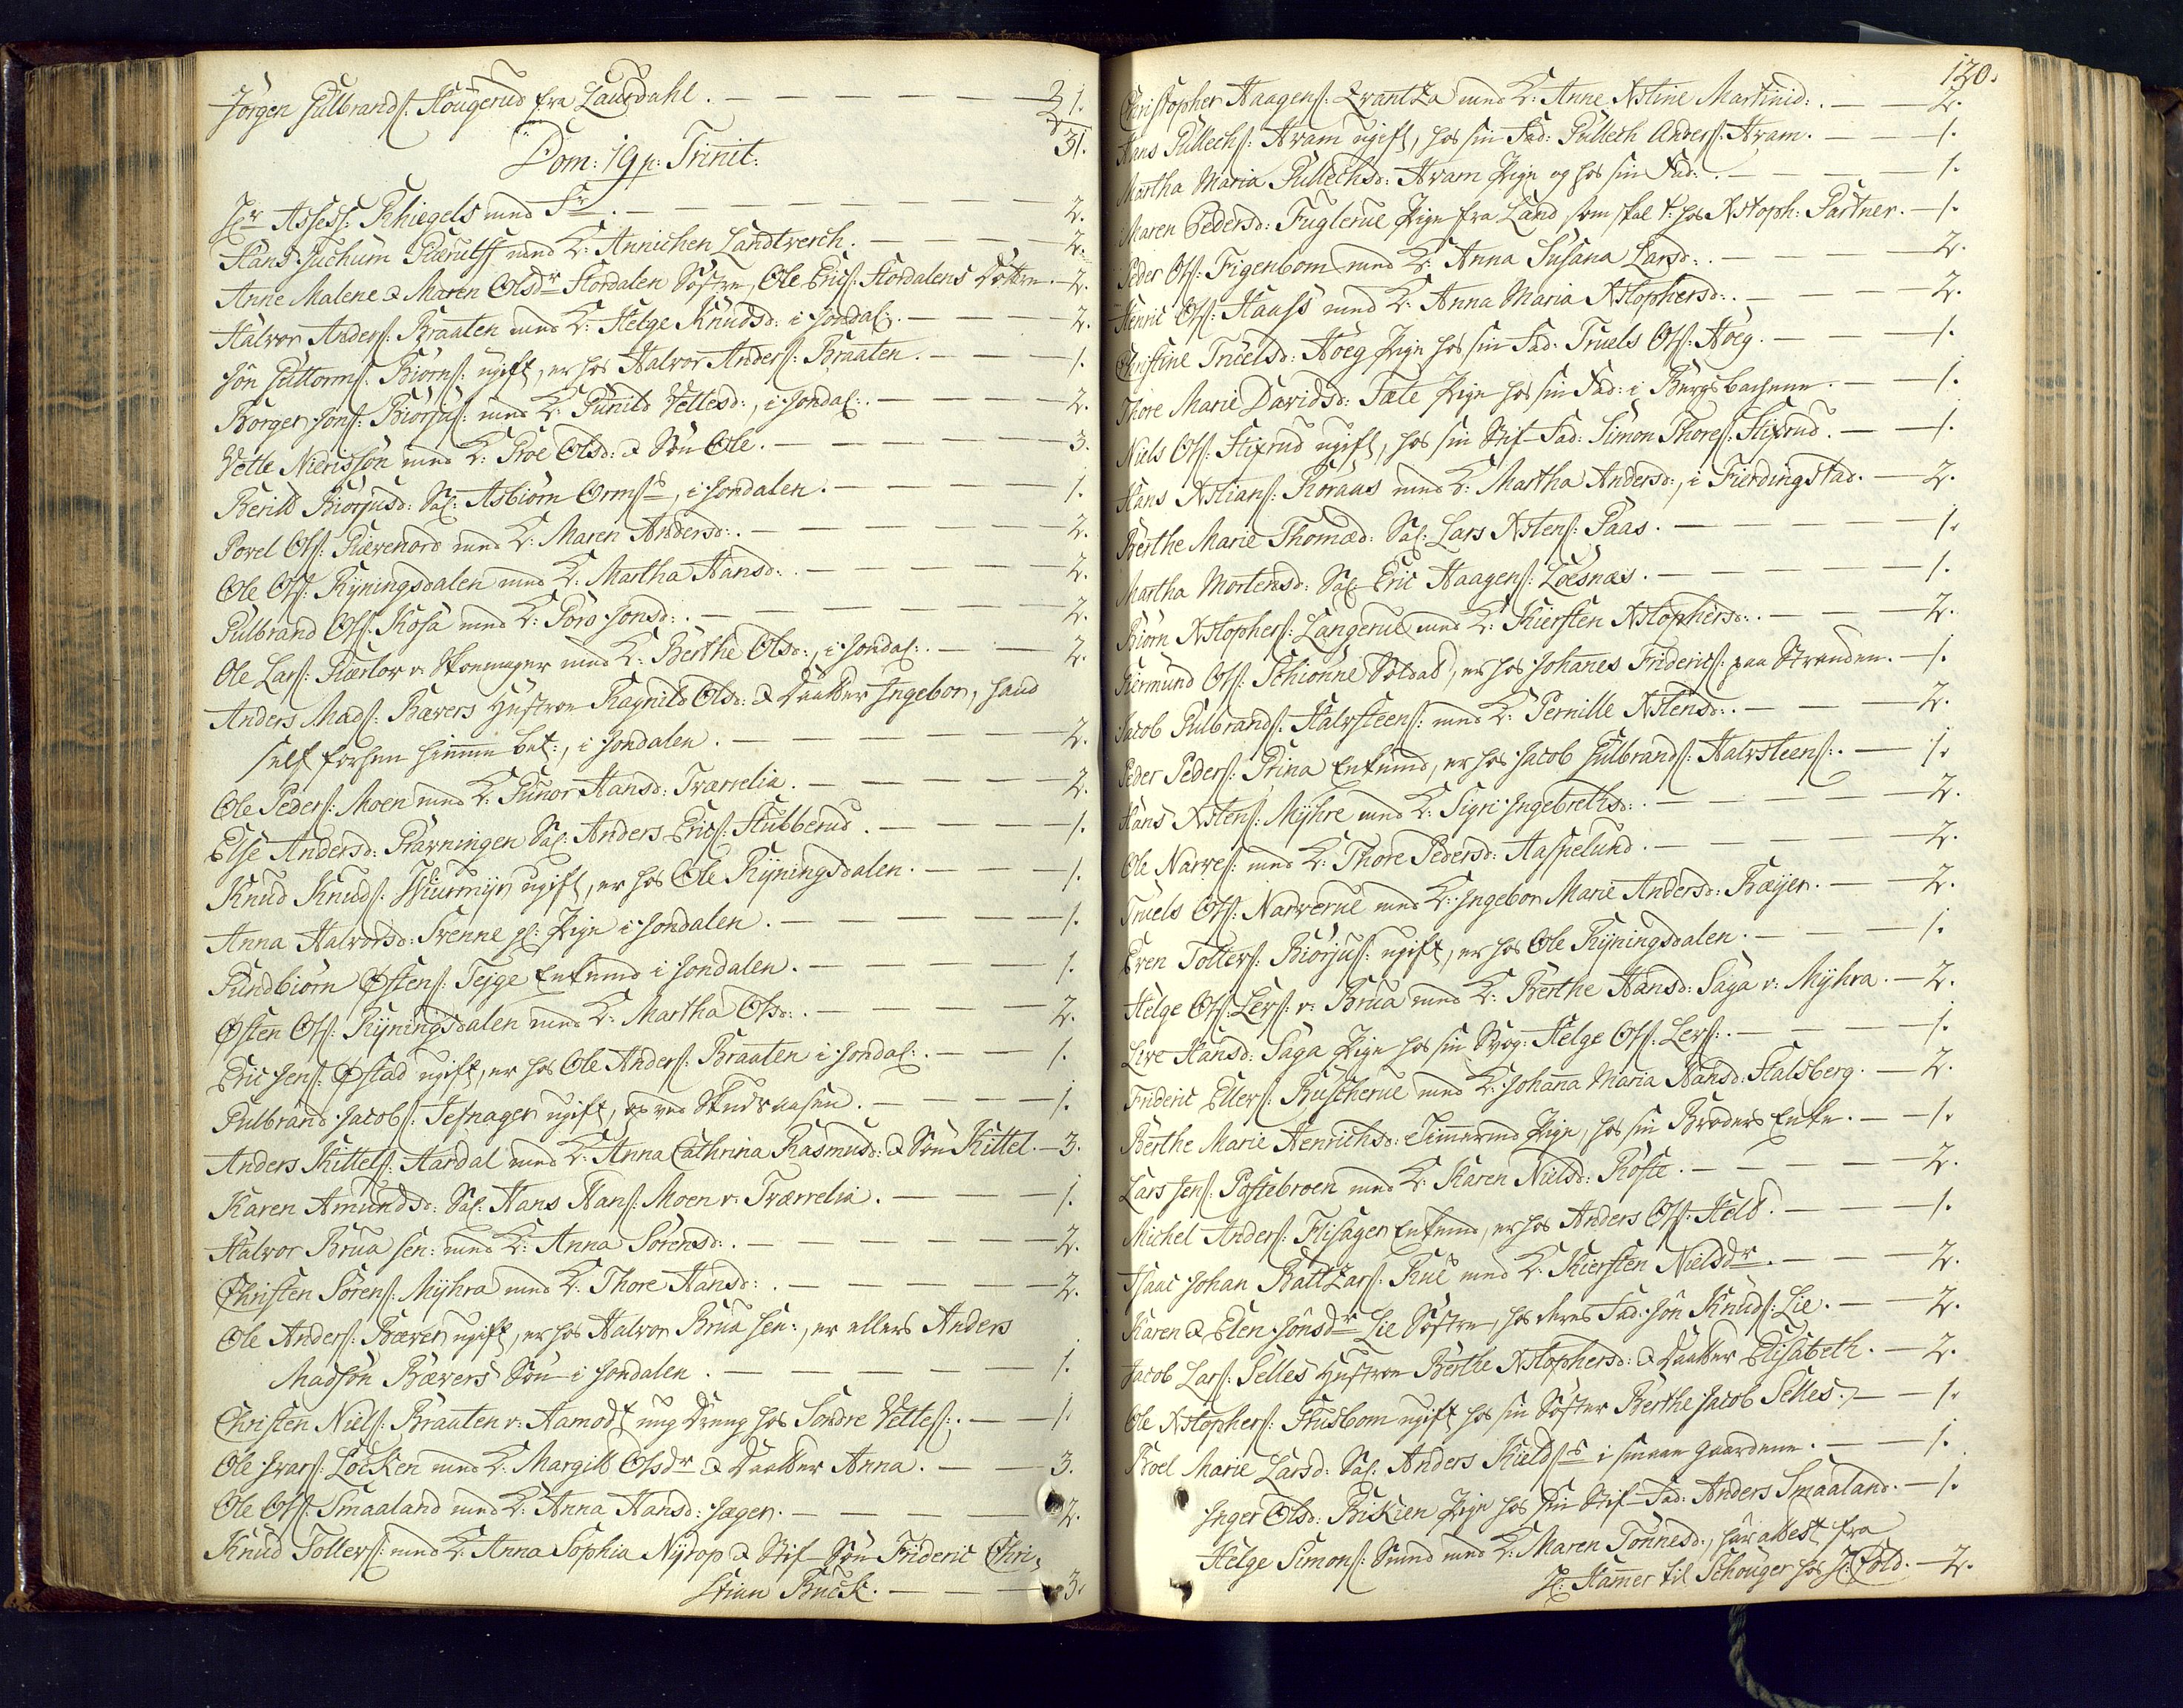 Jörgen Gulbrands: Hougerud fra Laurdahl. 1.
31.
Dom: 19 p: Trinit:
Hr Assess: Schiegels med Fr 2.
Hans Juchum med K: Annichen Landtverch. 2.
Anne Malene & Maren Olsdr Stordalen Söstre, Ole Erics: Stordalens Döttre. 2.
Halvor Anders: Braaten med K: Helge Knudsd: i Jondal: 2.
Jön Guttorms: Biörns: ugift, er hos Halvor Anders: Braaten. 1.
Borger Jons: Biörjus: med K: Gunild Vettesd:, i Jondal: 2.
Vetle Nierisson med K: Groe Olsd: & Sön Ole. 3.
Berild Biorjusd: Sal: Asbiörn Orms:, i Jondalen. 1.
Povel Ols: Giævenord med K: Maren Andersd: 2.
Ole Ols: Kÿningsdalen med K: Martha Hansd: 2.
Gulbrand Ols: Kosa med K: Goro Jonsd: 2.
Ole Lars: Giærlov v: Skomager med K: Berthe Olsd:, i Jondal: 2.
Anders Mads: Bævers Hustroe Ragnild Olsd: & Daatter Ingebor, hand
self forhen himmin bet:, i Jondalen. 2.
Ole Peders: Moen med K: Gunor Hansd: Tværrelia. 2.
Else Andersd: Grævningen Sal: Anders Erics: Stubberud. 1.
Knud Knuds: ugift, er hos Ole Kÿningsdalen. 1.
Anna Halvorsd: Svenne gl: Pige i Jondalen. 1.
Gundbiörn Östens: Tejge Enkemd i Jondalen. 1.
Östen Ols: Kÿningsdalen med K: Martha Olsd: 2.
Eric Jens: Östad ugift, er hos Ole Anders: Braaten i Jondal: 1.
Gulbrand Jacobs: Tesnager ugift, ved Skudsaasen. 1.
Anders Kittels: Aardal med K: Anna Cathrina Rasmusd: & Sön Kittel. 3.
Karen Amundsd: Sal: Hans Hans: Moen v: Tværrelia. 1.
Halvor Brua sen: med K: Anna Sörensd: 2.
Christen Sörens: Mÿhra med K: Thore Hansd: 2.
Ole Anders: Bæver ugift, er hos Halvor Brua sen:, er ellers Anders
Madsön Bævers Sön i Jondalen. 1.
Christen Niels: Braaten v: Aamodt ung Dreng hos Sondre Vettes: 1.
Ole Ivars: Löcken med K: Margith Olsdr & Daatter Anna. 3.
Ole Ols: Smaaland med K: Anna Hansd: Jæger. 2.
Knud Tollevs: med K: Anna Sophia Nÿrop & Stif-Sön Frideric Chri-
stian Buck. 3.
120.
Christopher Haagens: Svantza med K: Anne Xstine Martinid: 2.
Hans Gullechs: Hvam ugift, hos sin Fad: Gullech Anders: Hvam. 1.
Martha Maria Gullechsd: Hvam Pige og hos sin Fad: 1.
Maren Pedersd: Fuglerue Pige fra Land som skal t: hos Xstoph: Gartner. 1.
Peder Ols: Figenbom med K: Anna Susana Larsd: 2.
Henric Ols: Hauss med K: Anna Maria Xstophersd: 2.
Christine Truelsd: Höeg Pige hos sin Fad: Truels Ols: Höeg. 1.
Thore Marie Davidsd: Tæte Pige hos sin Fad: i Bergsbachene. 1.
Niels Ols: Stixrud ugift, hos sin Stif-Fad: Simon Thores: Stixrud. 1.
Hans Xstians: Koraus med K: Martha Andersd:, i Fierdingstad. 2.
Berthe Marie Thomæd: Sal: Lars Xstens: Gaas. 1.
Martha Mortensd: Sal: Eric Haagens: Loesnæs. 1.
Biörn Xstophers: Langerue med K: Kiersten Xstophersd: 2.
Giermund Ols: Schiönne Soldat, er hos Johanes Friderics: paa Stranden. 1.
Jacob Gulbrands: Halvsteens: med K: Pernille Xstensd: 2.
Peder Peders: Prina Enkemd, er hos Jacob Gulbrands: Halvsteens: 1.
Hans Xstens: Mÿhre med K: Sigri Ingebrethsd: 2.
Ole Narves: med K: Thore Pedersd: Haspelund. 2.
Truels Ols: Narverue med K: Ingebor Marie Andersd: Bæÿer. 2.
Even Tollevs: Biörjus: ugift, er hos Ole Kÿningsdalen. 1.
Helge Ols: Levs: v: Brua med K: Berthe Hansd: Saga v: Mÿhra. 2.
Live Hansd: Saga Pige hos sin Svog: Helge Ols: Levs: 1.
Frideric Ellevs: Buscherue med K: Johanna Maria Hansd: Stalsberg. 2.
Berthe Marie Henrichsd: Timermd Pige, hos sin Broders Enke. 1.
Lars Jens: Postebroen med K: Karen Nielsd: Roste. 2.
Michel Anders: Flisager Enkemd, er hos Anders Ols: Held. 1.
Isaac Johan Baltzars: Rue med K: Kiersten Nielsdr 2.
Karen & Elen Jönsdr Lie Söstre, hos deres Fad: Jön Knuds: Lie. 2.
Jacob Lars: Selles Hustroe Berthe Xstophersd: & Daatter Elisabeth. 2.
Ole Xstophers: Skusbom ugift hos sin Söster Berthe Jacob Selles. 1.
Boel Marie Larsd: Sal: Anders Kields: i smaae gaardene. 1.
Inger Olsd: Bikien Pige hos sin Stif-Fad: Anders Smaaland. 1.
Helge Simons: Smed med K: Maren Tönnesd:, har attest fra
H: Hamer til Schouger hos H: Cold. 2.